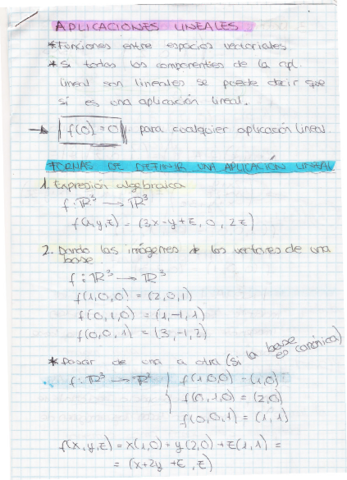 APLICACIONES LINEALES
* Funciones entre espacios vectoriales
* Si todas las componentes de la apl.
lineal son lineales se puede decir que
sí es una aplicación lineal.
→ f(0) = 0 para cualquier aplicación lineal.
FORMAS DE DEFINIR UNA APLICACIÓN LINEAL
1. Expresión algebraica
f: ℝ³ → ℝ³
f(x,y,z) = (3x-y+z, 0, 2z)
2. Dando las imágenes de los vectores de una
base.
f: ℝ³ → ℝ³
f(1,0,0) = (2,0,1)
f(0,1,0) = (1,-1,1)
f(0,0,1) = (3,-1,2)
* Pasar de una a otra (Si la base es canónica)
f: ℝ³ → ℝ² f(1,0,0) = (1,0)
f(0,1,0) = (2,0)
f(0,0,1) = (1,1)
f(x,y,z) = x(1,0) + y(2,0) + z(1,1) =
= (x+2y+z, z)